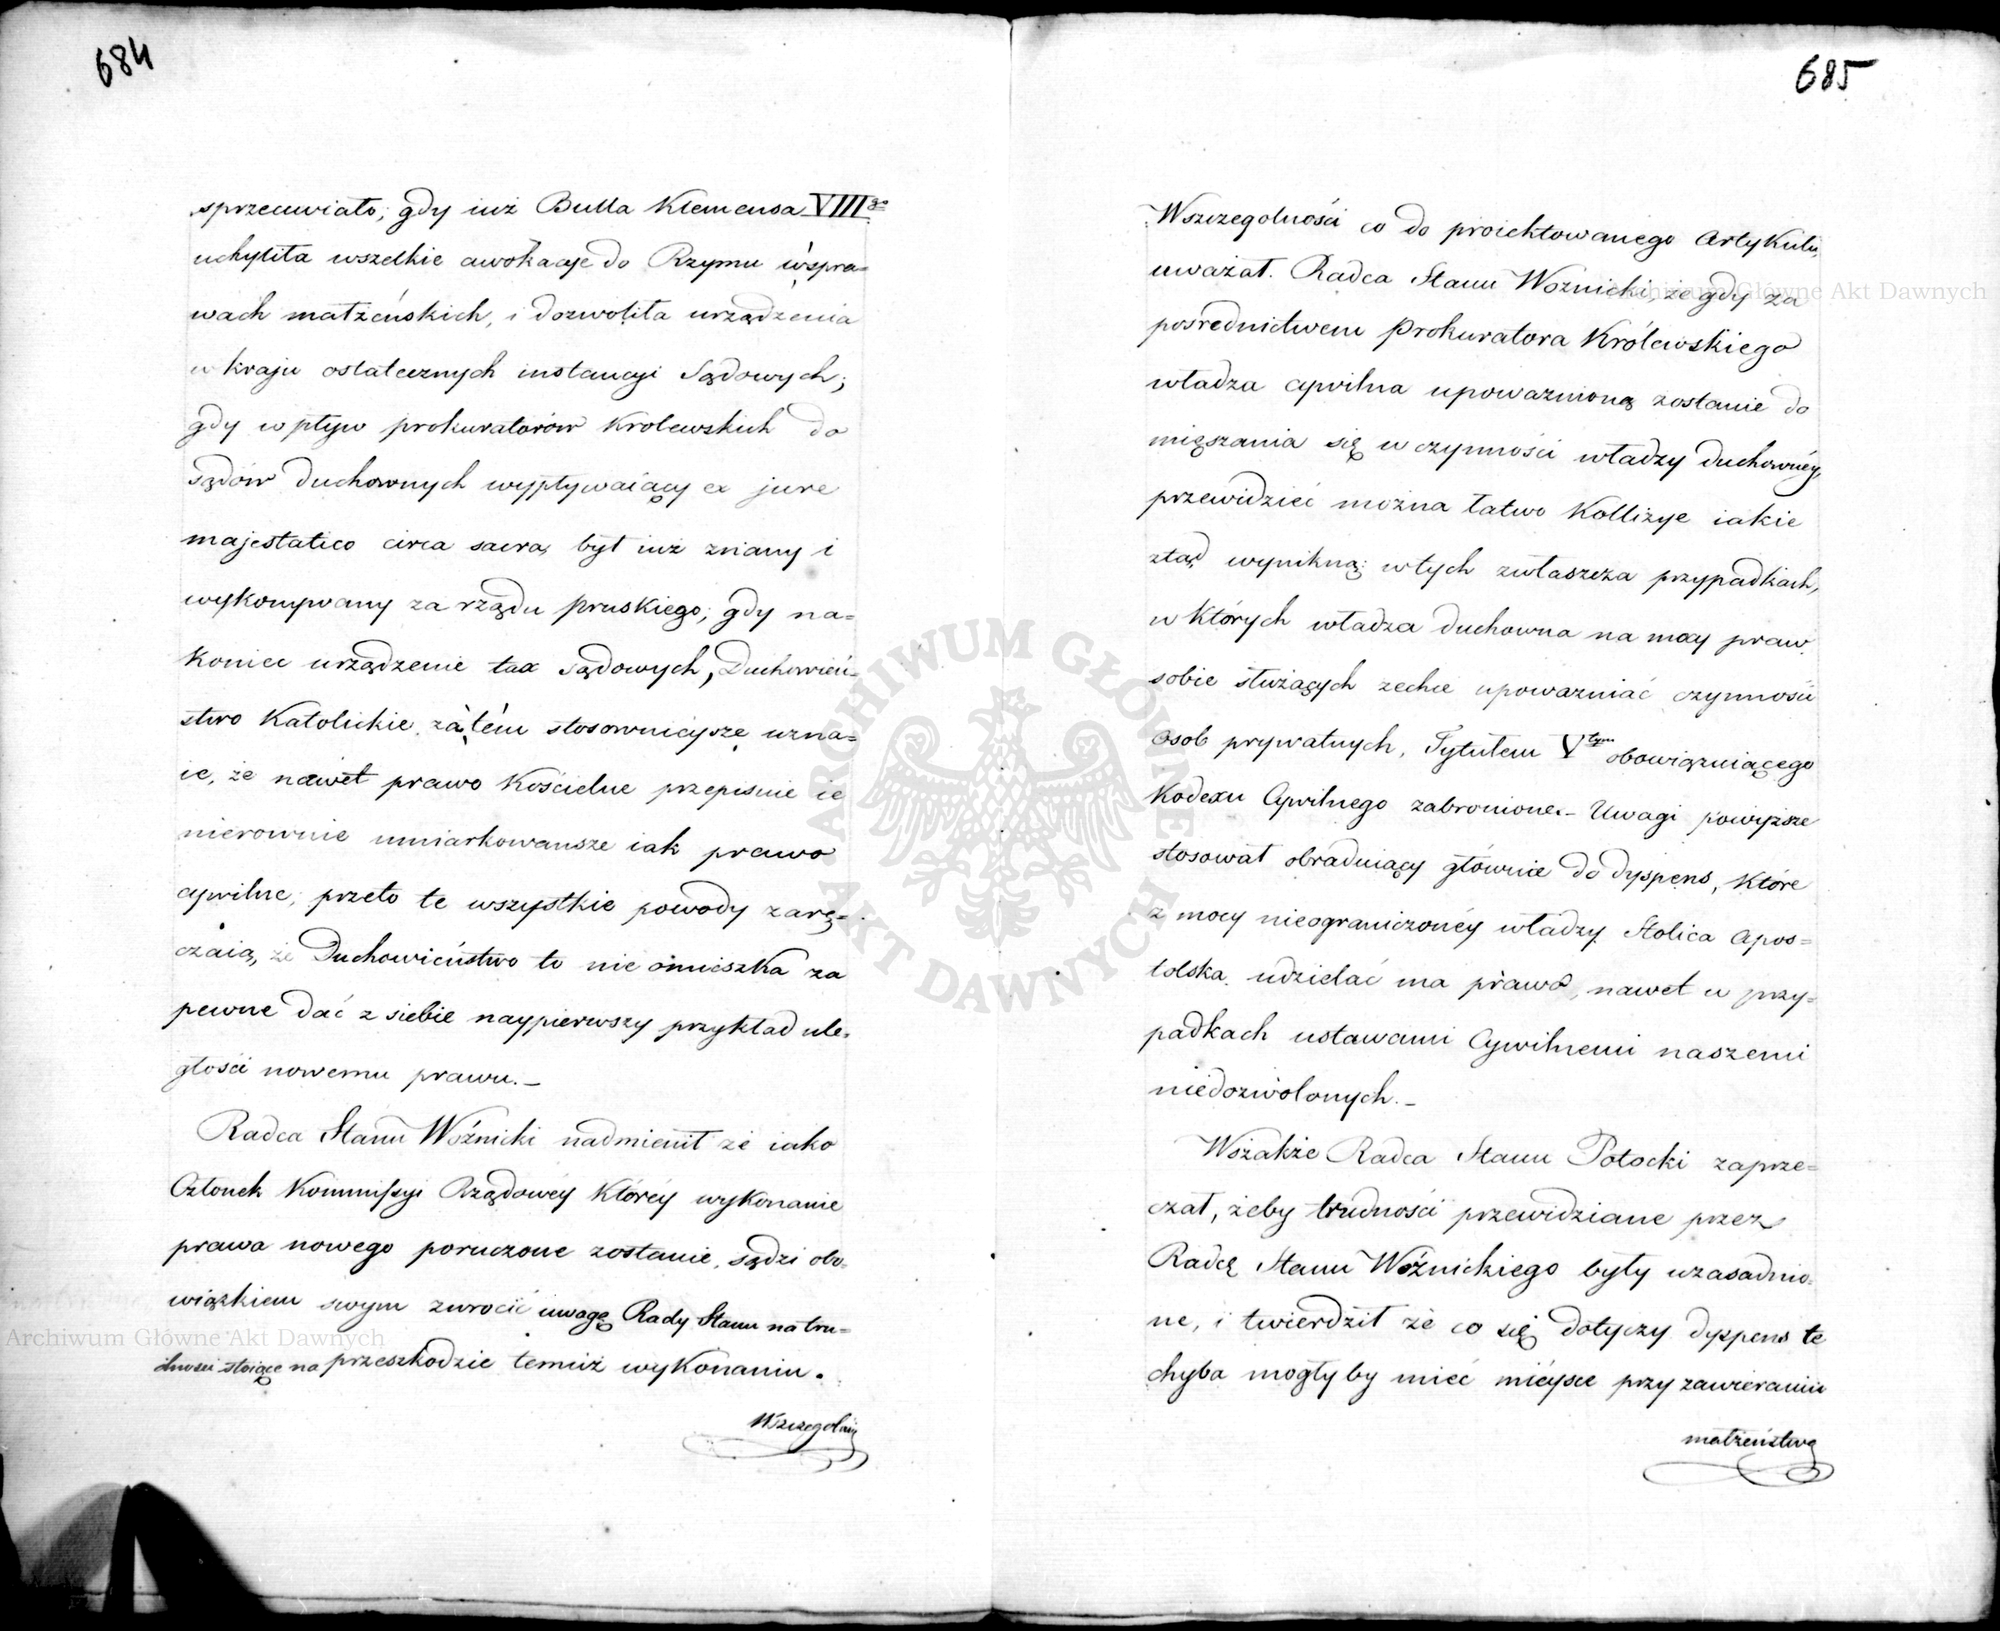 684
sprzeciwiało; gdy iuż Bulla Klemensa VIIIgo
uchyliła wszelkie awokacje do Rzymu w spra=
wach małżeńskich, i dozwoliła urządzenia
w kraju ostatecznych instancyi Sądowych;
gdy wpływ prokuratorów Krolewskich do
Sądów Duchownych wypływaiący ex jure
majestatico circa sacra, był iuż znany i
wykonywany za rządu pruskiego; gdy na=
koniec urządzenie tax Sądowych, Duchowień=
stwo Katolickie zatém stosownieysze uzna=
ie, że nawet prawo Kościelne przepisuie ie
nierownie umiarkowansze iak prawo
cywilne; przeto te wszystkie powody zarę=
czaią, że Duchowieństwo to nie omieszka za
pewne dać z siebie naypierwszy przykład ule=
głości nowemu prawu.—
Radca Stanu Woźnicki nadmienił że iako
Członek Kommissyi Rządowéy któréy wykonanie
prawa nowego poruczone zostanie, sądzi obo=
wiązkiem swym zwrocić uwagę Rady Stanu na tru=
dności stoiące na przeszkodzie temuż wykonaniu.
Wszczegolnoś
685
Wszczegolności co do proiektowanego Artykułu,
uważał Radca Stanu Woźnicki, że gdy za
pośrednictwem Prokuratora Królewskiego
władza cywilna upoważnioną zostanie do
mięszania się w czynności władzy duchownéy,
przewidzieć można łatwo Kollizye iakie
ztąd wynikną; w tych zwłaszcza przypadkach,
w których władza duchowna na mocy praw
sobie służących zechce upoważniać czynności
osob prywatnych, Tytułem Vtym obowiązuiącego
Kodexu Cywilnego zabronione.— Uwagi powyższe
stosował obraduiący głównie do dyspens, które
z mocy nieograniczonéy władzy Stolica Apos=
tolska udzielać ma prawo, nawet w przy=
padkach ustawami Cywilnemi naszemi
niedozwolonych.—
Wszakże Radca Stanu Potocki zaprze=
czał, żeby trudności przewidziane przez
Radcę Stanu Woźnickiego były uzasadnio=
ne, i twierdził że co się dotyczy dyspens te
chyba mogłyby mieć mieysce przy zawieraniu
małżeństwa
ARCHIWUM GŁÓWNE AKT DAWNYCH
Archiwum Główne Akt Dawnych
Archiwum Główne Akt Dawnych